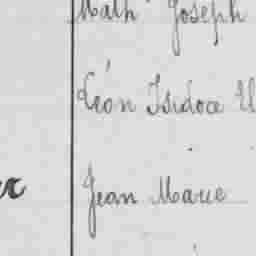 Math Joseph
Léon Isidore
Jean Marie